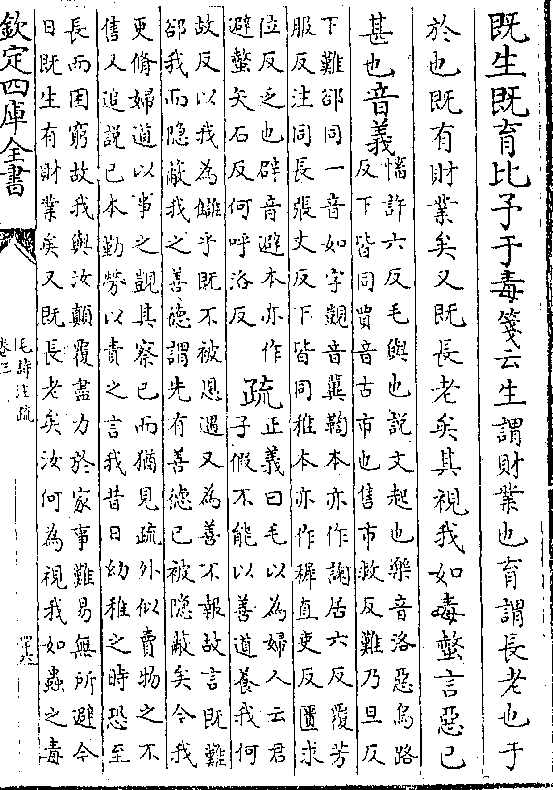 既生既育比予于毒箋云生謂財業也育謂長老也于
於也既有財業矣又既長老矣其視我如毒螫言惡已
甚也音義
慉許六反毛興也說文起也樂音洛惡烏路
反下皆同賈音古市也售市救反難乃旦反
下難郤同一音如字觀音冀鞫本亦作諊居六反覆芳
服反注同長張丈反下皆同稚本亦作稺直吏反匱求
位反乏也辟音避本亦作
避螫矢石反何呼洛反
疏
正義曰毛以為婦人云君
子假不能以善道養我何
故反以我為讎乎既不被恩遇又為善不報故言既難
郤我而隐蔽我之善德謂先有善德已被隐蔽矣今我
更脩婦道以事之覬其察已而猶見疏外似賣物之不
售又追說已本勤勞以責之言我昔日幼稚之時恐至
長而困窮故我與汝顛覆盡力於家事難易無所避今
日既生有財業矣又既長老矣汝何為視我如蟲之毒
欽定四庫全書
毛詩注疏
卷三